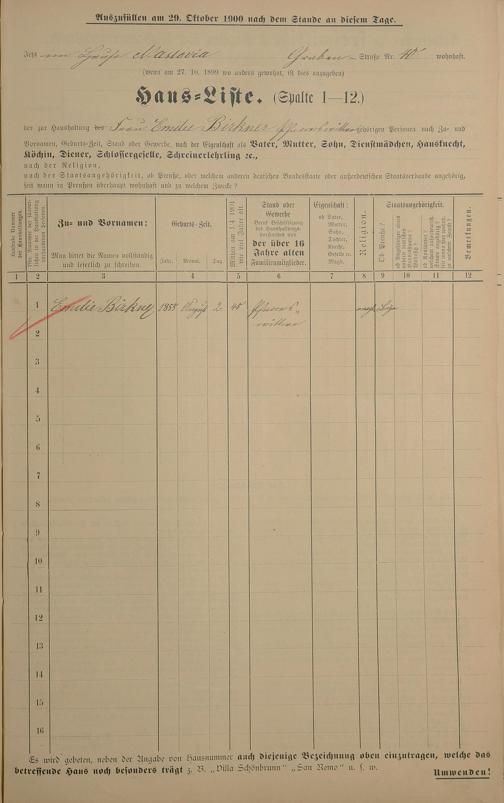 Auszufüllen am 29. Oktober 1900 nach dem Stande an diesem Tage.
Jetzt im Hause Massovia Graben-Straße Nr. wohnhaft.
(wenn am 27. 10. 1899 wo anders gewohnt, ist dies anzugeben)
Haus-Liste. (Spalte 1—12.)
der zur Haushaltung des Frau Emilie Birkner gehörigen Personen nach Zu- und
Vornamen, Geburts-Zeit, Stand oder Gewerbe, nach der Eigenschaft als Vater, Mutter, Sohn, Dienstmädchen, Hausknecht,
Köchin, Diener, Schlossergeselle, Schreinerlehrling ec.,
nach der Religion,
nach der Staatsangehörigkeit, ob Preuße, oder welchem anderen deutschen Bundesstaate oder außerdeutschen Staatsverbande angehörig,
seit wann in Preußen überhaupt wohnhaft und zu welchem Zwecke?
Zu- und Vornamen:
Man bittet die Namen vollständig und leserlich zu schreiben.
Geburts-Zeit.
Jahr. Monat. Tag
Mithin am 1./4. 1901 wie viel Jahre alt
Stand oder Gewerbe
der über 16 Jahre alten Familienmitglieder.
Eigenschaft:
ob Vater, Mutter, Sohn, Tochter, Knecht, Geselle u. Magd.
Religion.
Staatsangehörigkeit.
Ob Preuße?
Bemerkungen.
1 2 3 4 5 6 7 8 9 10 11 12
1 Emilie Birkner 1855 August 2 45
2
3
4
5
6
7
8
9
10
11
12
13
14
15
16
Es wird gebeten, neben der Angabe von Hausnummer auch diejenige Bezeichnung oben einzutragen, welche das
betreffende Haus noch besonders trägt z. B. „Villa Schönbrunn" „San Remo" u. s. w.
Umwenden!